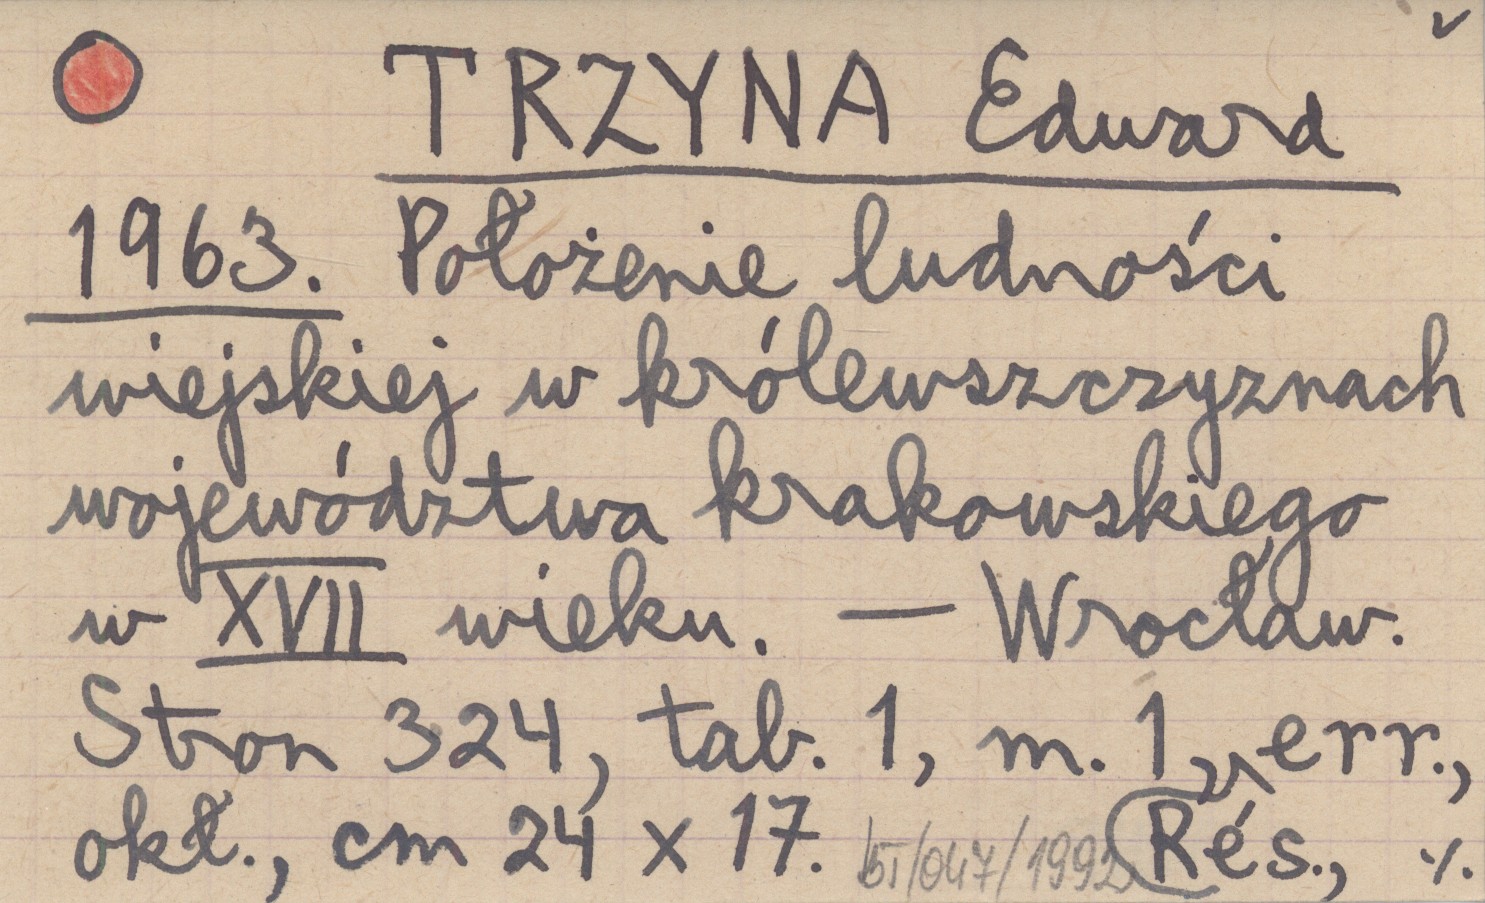 TRZYNA Edward
1963. Położenie ludności
wiejskiej w królewszczyznach
województwa krakowskiego
w XVII wieku. — Wrocław.
Stron 324, tab. 1, m. 1, err.,
okł., cm 24 x 17. /1992 Rés., ./.